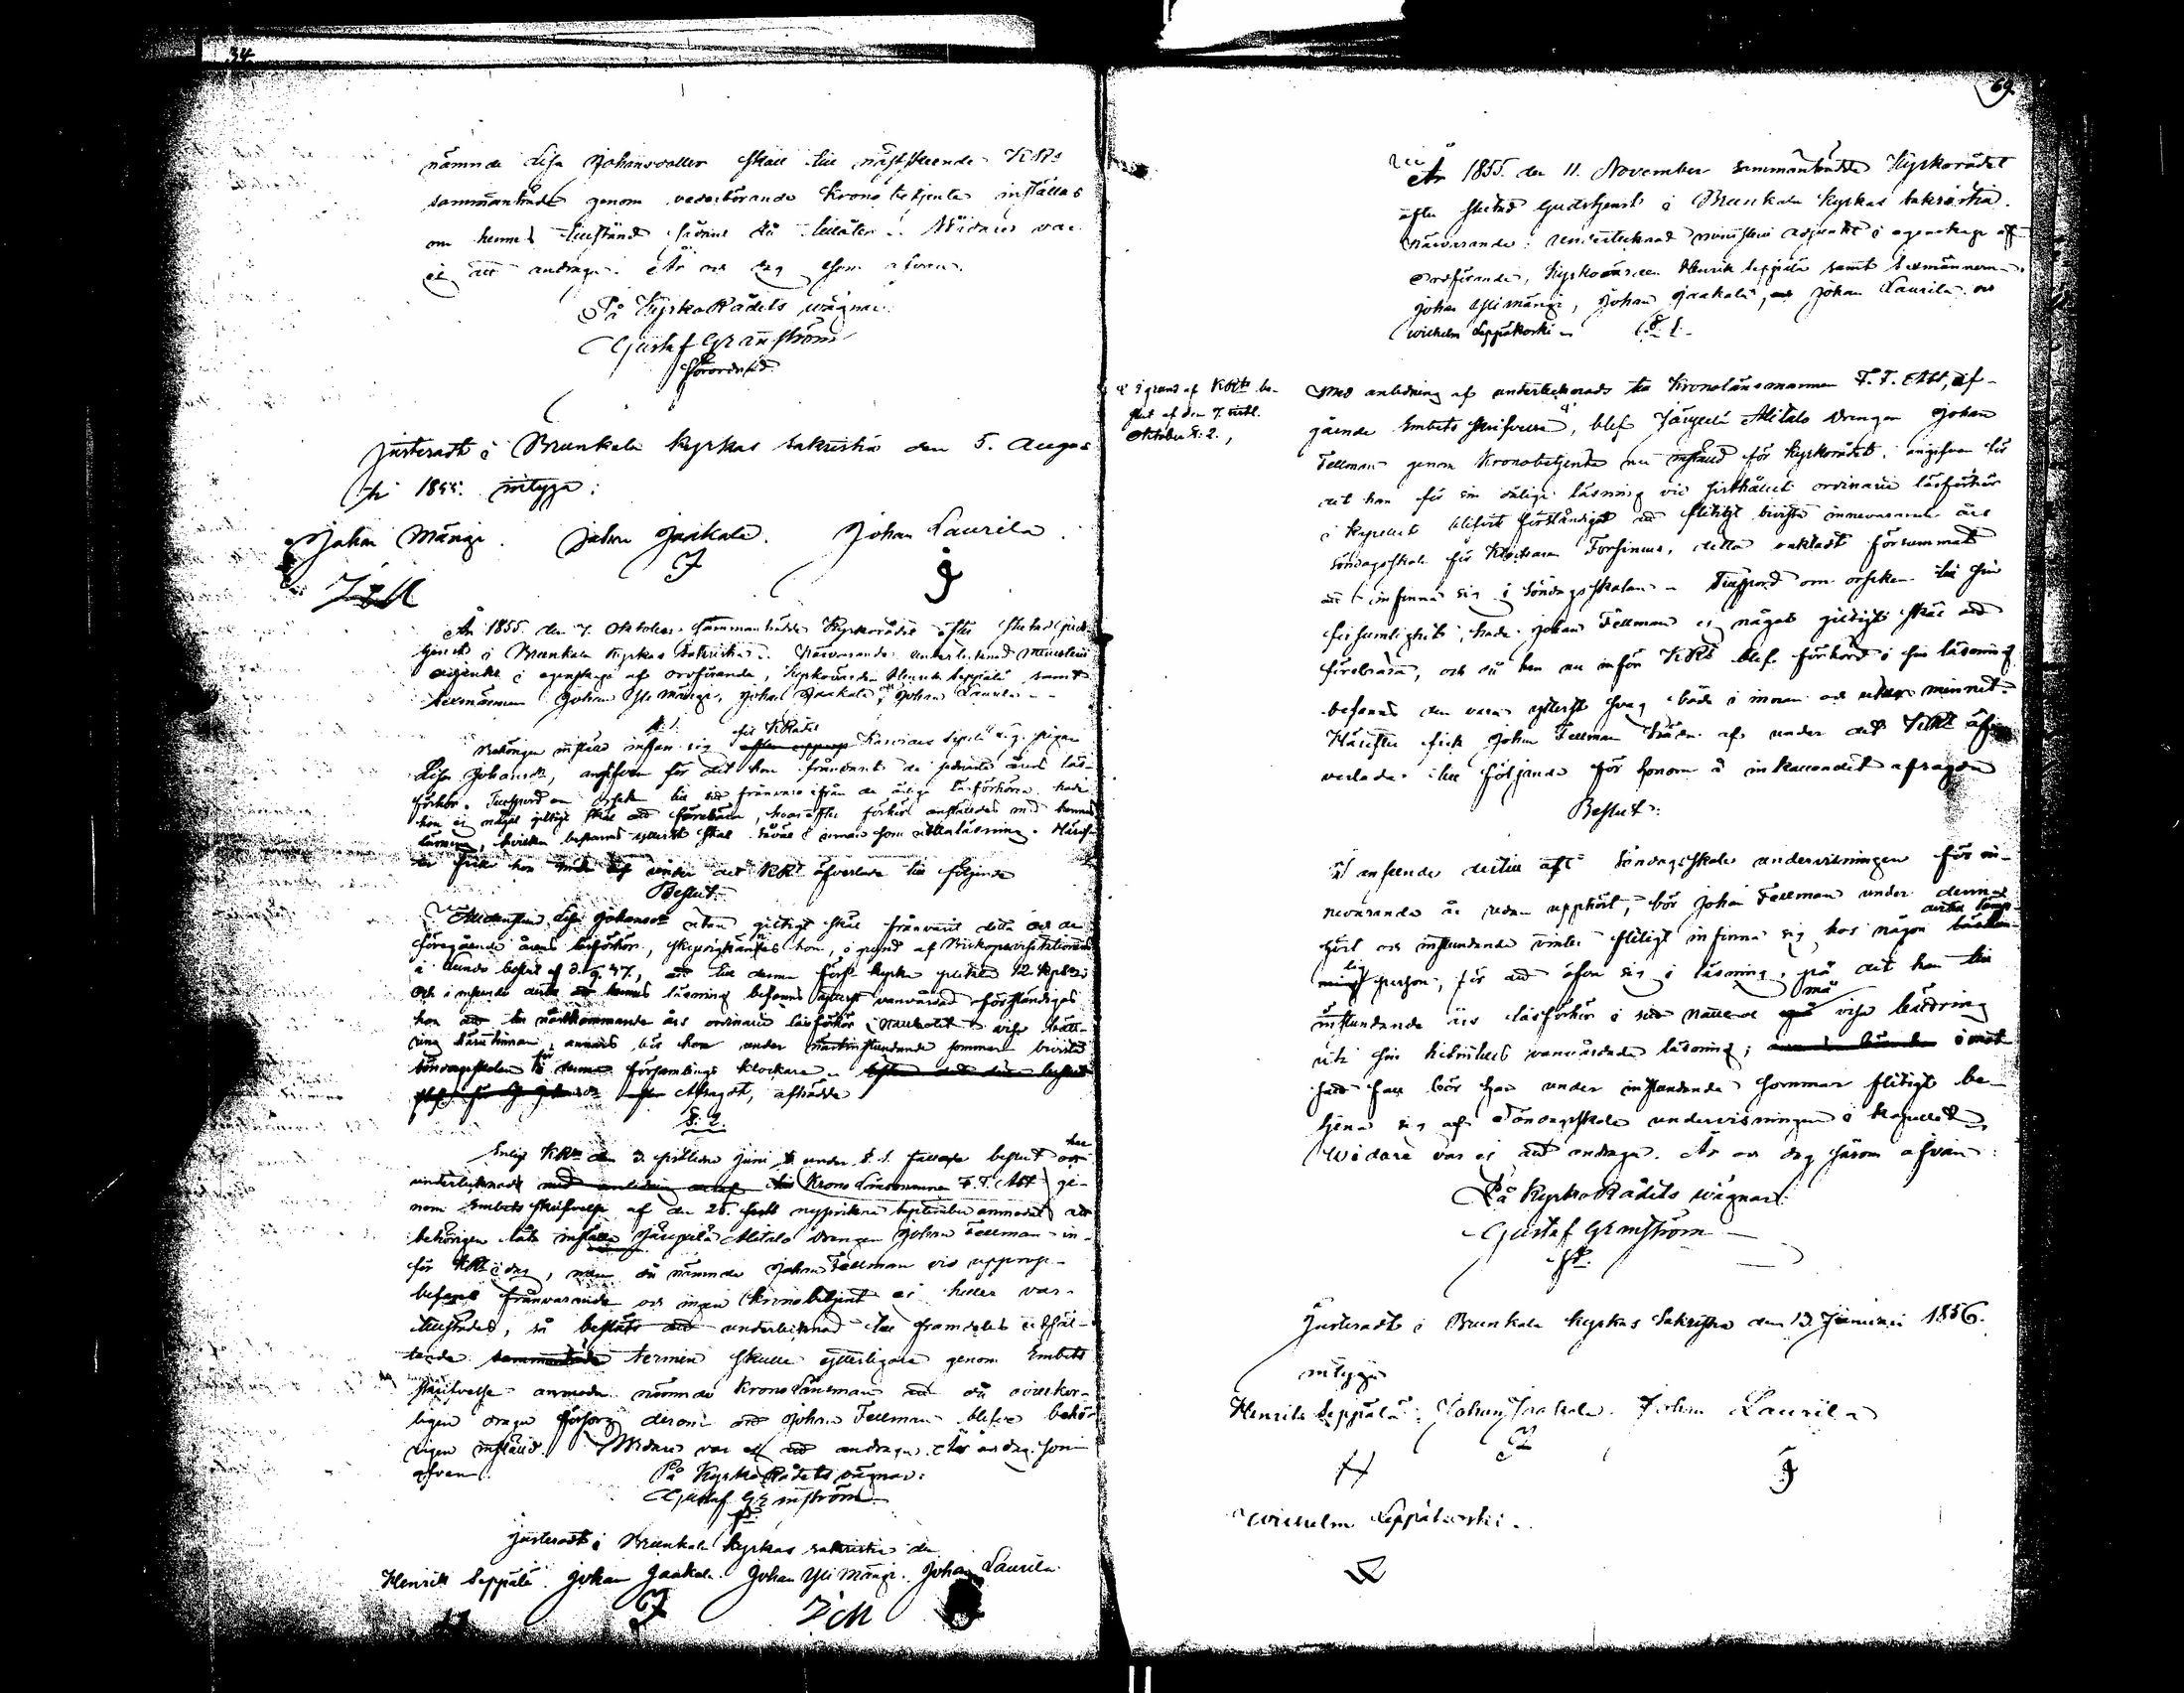 34.
nämnde Lisa Johansdotter skall till nästskeende KRds
sammanträde genom vederbörande Kronobetjente inställas
om hennes tillstånd sådant då tillåter. Widare var
ej att andraga. År och dag som ofvan.
På KyrkoRådets wägnar:
Gustaf Granström
förordnad.
Justeradt i Brunkala kyrkas sakristia den 5. Augus
ti 1855. intyga:
Johan Mängi. Johan Jaakala. Johan Laurila.
J J
År 1855 den 7. Oktober sammanträdde Kyrkorådet efter slutad Guds
tjenst i Brunkala kyrkas sakristia. Närvarande: undertecknad
i egenskap af ordförande, Kyrkovärden Henrik Seppälä samt
Sexmännen Johan Yli Mängi, Johan Jaakala och Johan Laurila.
§ 1.
Behörigen inställd infann sig för KRådet pigan
Lisa Johansdr, angifven för det hon frånvarit de sednaste årens läs-
förhör. Tillspord om orsaken till sin frånvaro ifrån de årliga läsförhören hade
hon ej något giltigt skäl att förebära, hvarefter förhör anställdes med hennes
läsning, hvilken befanns ytterst skal såväl i innan som utanläsning. Häref-
ter fick hon träda af under det KRt öfverlade till följande
Beslut:
Alldenstund Lisa Johansdr utan giltigt skäl frånvarit detta och de
föregående årens läsförhör, skyldigkännes hon, i grund af Biskopsvisitationens
i Lundo beslut af d. 9. 47, att till denna förs. kyrka plikta 12 kop. Sr.
Och i anseende dertill att hennes läsning befanns ytterst vanvårdad förständigas
hon att till nästkommande års ordinarie läsförhör visa bätt-
ring häruthinnan, annars bör hon under nästinstundande sommar bevista
söndagsskolan för denna församlings klockare.
Afsagdt, afträdde
§. 2.
Enligt KRts den 3. sistlidne Juni under §. 1. fattade beslut har
undertecknad Krono Länsmannen F. T. Abb ge-
nom Embets skrifvelse af den 26. sistl. nyssvikne September anmodat att
behörigen låta inställa Järypilä Alitalo drengen Johan Fellman in-
för KRt i dag, men då nämnde Johan Fellman vid upprop
befans frånvarande och ingen Kronobetjent ej heller var
tillstädes, så undertecknad till framdeles utsät-
tande termin skulle ytterligare genom Embets
skrifvelse anmoda nämnde Krono Länsman att då ovilkor-
ligen draga försorg derom att Johan Fellman blifver behö-
rigen inställd. Widare var ej att andraga. År och dag som
ofvan. På KyrkoRådets wägnar:
Gustaf Granström
Justeradt i Brunkala kyrkas sakristia den
Henrik Seppälä. Johan Jaakala. Johan Yli Mängi. Johan Laurila
J J M
69.
År 1855. den 11. November sammanträdde Kyrkorådet
efter slutad Gudstjenst i Brunkala Kyrkas sakristia.
Närvarande: undertecknad ministerii adjunkt i egenskap af
ordförande, Kyrkovärden Henrik Seppälä samt Sexmännen
Johan Yli Mängi, Johan Jaakala, Johan Laurila och
Wilhelm Leppäkoski. § 1.
i grund af KRts be-
slut af den 7. sistl.
Oktober §. 2.,
Med anledning af undertecknads till Kronolänsmannen F. T. Abb, af-
gående Embets skrifvelse, blef Järypilä Alitalo drengen Johan
Fellman genom Kronobetjente nu inställd för Kyrkorådet, angifven för
det han för sin dåliga läsning vid sisthållet ordinarie läsförhör
i Kapellet blifvit förständigad att flitigt bivista innevarande års
söndagsskola för Klockaren Forsinius, detta oaktadt försummat
att infinna sig i söndagsskolan. Tillsporð om orsaken till sin
försumlighet, hade Johan Fellman ej något giltigt skäl att
förebära, och då han nu inför KRt blef förhörd i sin läsning
befanns den vara ytterst svag både i innan och utan minnet.
Härefter fick Johan Fellman träda af under det KRt öf-
verlade till följande för honom å inkallandet afsagda
Beslut:
I anseende dertill att Söndagsskole undervisningen för in-
nevarande år redan upphört, bör Johan Fellman under denna
höst och instundande vinter flitigt infinna sig hos någon dertill lämp-
lig person, för att öfva sig i läsning, på det han till
instundande års läsförhör i må visa bättring
uti sin hittills vanvårdade läsning; i mot-
satt fall bör han under instundande sommar flitigt be-
tjena sig af Söndagsskole undervisningen i kapellet.
Widare var ej att andraga. År och dag härom ofvan:
På KyrkoRådets wägnar:
Gustaf Granström
Justeradt i Brunkala kyrkas Sakristia den 13 Januari 1856.
intyga
Henrik Seppälä. Johan Jaakala. Johan Laurila
H J J
Wilhelm Leppäkoski.
W